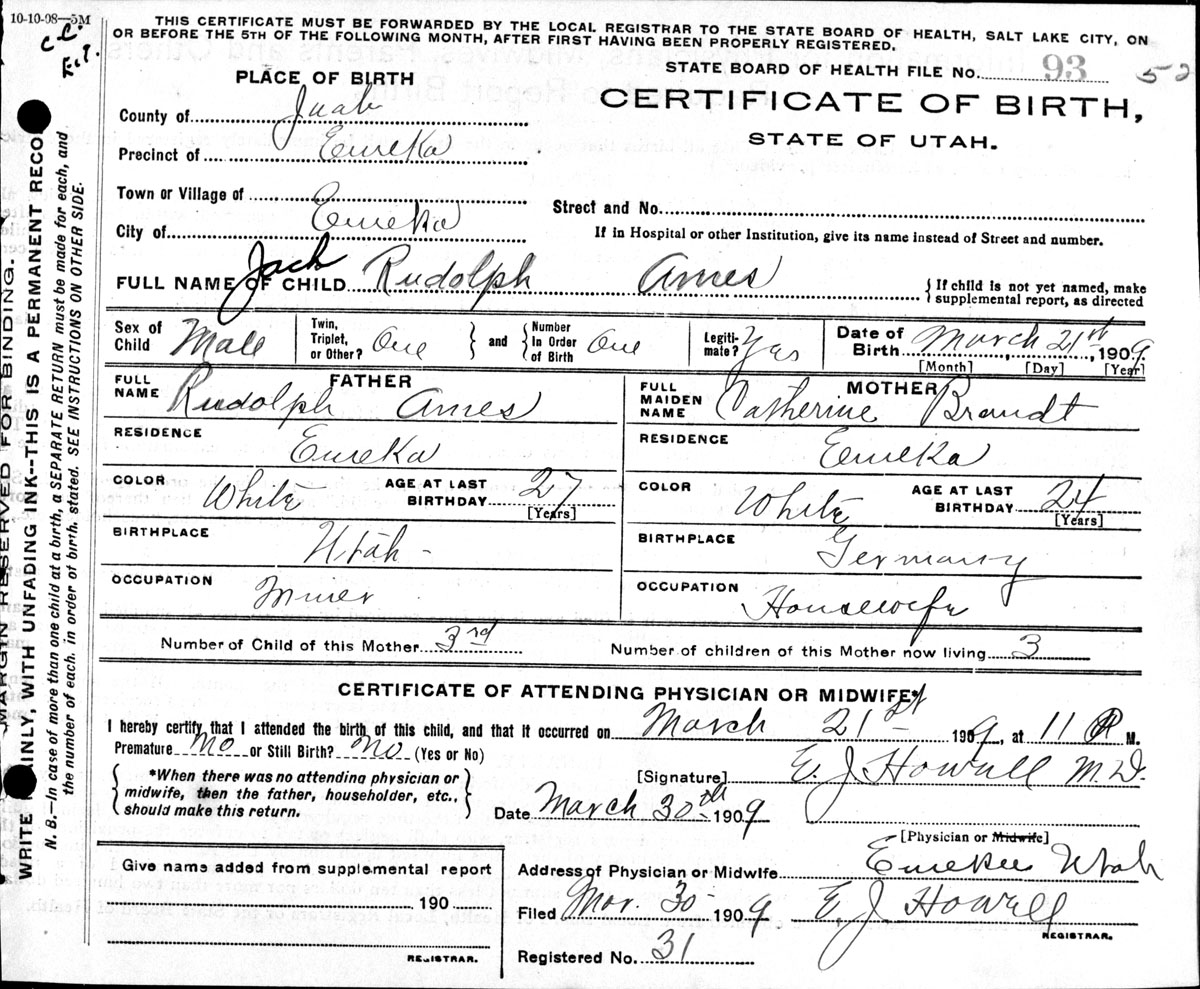 10-10-08—5M
THIS CERTIFICATE MUST BE FORWARDED BY THE LOCAL REGISTRAR TO THE STATE BOARD OF HEALTH, SALT LAKE CITY, ON
OR BEFORE THE 5TH OF THE FOLLOWING MONTH, AFTER FIRST HAVING BEEN PROPERLY REGISTERED.
STATE BOARD OF HEALTH FILE NO. 93 52
CERTIFICATE OF BIRTH,
STATE OF UTAH.
PLACE OF BIRTH
County of Juab
Precinct of Eureka
Town or Village of
City of Eureka
Street and No.
If in Hospital or other Institution, give its name instead of Street and number.
FULL NAME OF CHILD Jack Rudolph Ames
{If child is not yet named, make
supplemental report, as directed
Sex of Child Male
Twin, Triplet, or Other? One } and { Number In Order of Birth One
Legiti-mate? Yes
Date of Birth March 21st, 1909
[Month] [Day] [Year]
FATHER
FULL NAME Rudolph Ames
RESIDENCE Eureka
COLOR White AGE AT LAST BIRTHDAY 27 [Years]
BIRTHPLACE Utah -
OCCUPATION Miner
MOTHER
FULL MAIDEN NAME Catherine Brandt
RESIDENCE Eureka
COLOR White AGE AT LAST BIRTHDAY 24 [Years]
BIRTHPLACE Germany
OCCUPATION Housewife
Number of Child of this Mother 3rd Number of children of this Mother now living 3
CERTIFICATE OF ATTENDING PHYSICIAN OR MIDWIFE*
I hereby certify that I attended the birth of this child, and that it occurred on March 21st 1909, at 11 P M.
Premature No or Still Birth? No (Yes or No)
{ *When there was no attending physician or
midwife, then the father, householder, etc.,
should make this return. }
[Signature] E. J. Howell M.D.
Date March 30th 1909
[Physician or Midwife]
Give name added from supplemental report
190
REGISTRAR.
Address of Physician or Midwife Eureka Utah
Filed Mar. 30 1909 E. J. Howell
REGISTRAR.
Registered No. 31
MARGIN RESERVED FOR BINDING.
WRITE PLAINLY, WITH UNFADING INK--THIS IS A PERMANENT RECO
N. B.—In case of more than one child at a birth, a SEPARATE RETURN must be made for each, and
the number of each, in order of birth, stated. SEE INSTRUCTIONS ON OTHER SIDE.